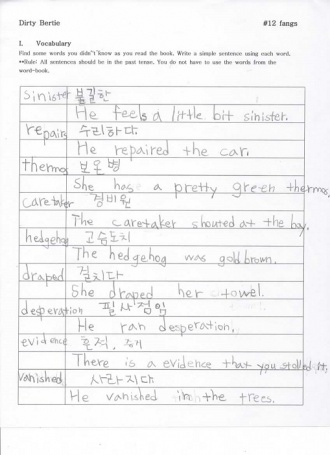 Dirty Bertie #12 fangs
I. Vocabulary
Find some words you didn"t know as you read the book. Write a simple sentence using each word.
**Rule! All sentences should be in the past tense. You do not have to use the words from the
word-book.
sinister 불길한
He feels a little bit sinister.
repair 수리하다.
He repaired the car.
thermos 보온병
She has a pretty green thermos.
caretaker 경비원
The caretaker shouted at the boy.
hedgehog 고슴도치
The hedgehog was gold brown.
draped 걸치다
She draped her towel.
desperation 필사적임
He ran desperation.
evidence 흔적, 증거
There is a evidence that you stolled it.
vanished 사라지다
He vanished in the trees.